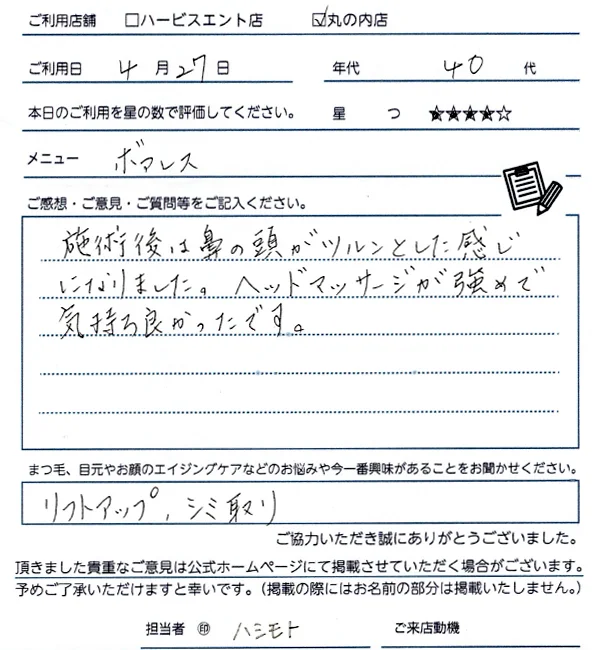 ご利用店舗 □ハービスエント店 ☑丸の内店
ご利用日 4月27日 年代 40代
本日のご利用を星の数で評価してください。 星 つ ★★★★☆
メニュー ボマレス
ご感想・ご意見・ご質問等をご記入ください。
施術後は鼻の頭がツルンとした感じ
になりました。ヘッドマッサージが強めで
気持ち良かったです。
まつ毛、目元やお顔のエイジングケアなどのお悩みや今一番興味があることをお聞かせください。
リフトアップ, シミ取り
ご協力いただき誠にありがとうございました。
頂きました貴重なご意見は公式ホームページにて掲載させていただく場合がございます。
予めご了承いただけますと幸いです。（掲載の際にはお名前の部分は掲載いたしません。）
担当者 ㊞ ハシモト ご来店動機